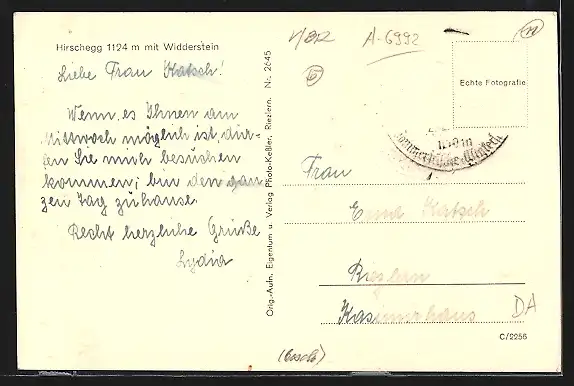 Hirschegg 1124 m mit Widderstein
Liebe Frau Katsch!
Wenn es Ihnen am
Mittwoch möglich ist, dür-
fen Sie mich besuchen
kommen; bin den gan
zen Tag zuhause.
Recht herzliche Grüße
Lydia
Orig.-Aufn. Eigentum u. Verlag Photo-Keßler, Riezlern. Nr. 2645
A-6992
Echte Fotografie
Frau
Emma Katsch
Riezlern
Kasimirhaus
DA
C/2256